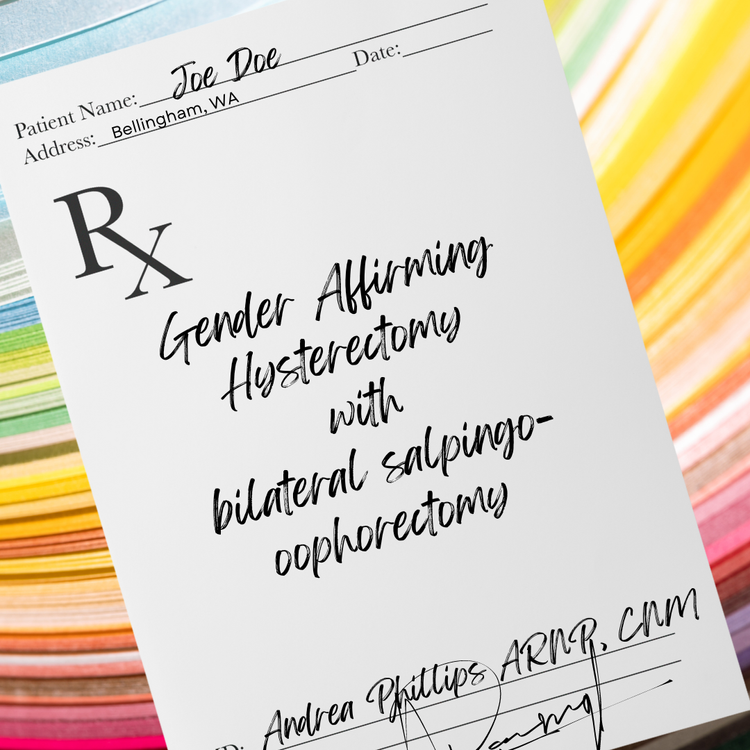 Patient Name: Joe Doe
Date:
Address: Bellingham, WA
Rx
Gender Affirming
Hysterectomy
with
bilateral salpingo-
oophorectomy
Andrea Phillips ARNP, CNM